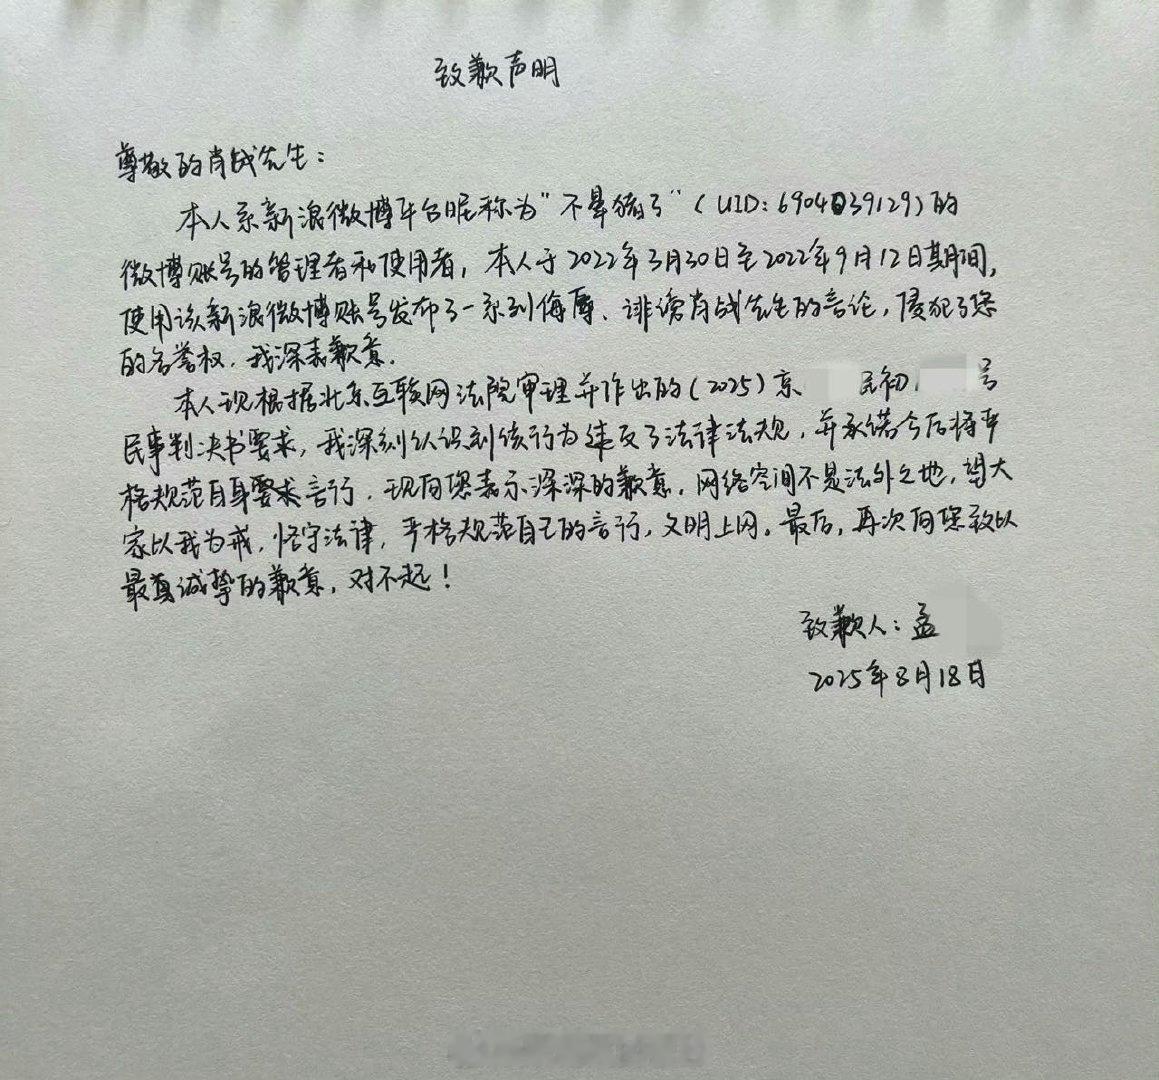 致歉声明
尊敬的肖战先生：
本人系新浪微博平台昵称为“不晕猪了”（UID：6904039129）的
微博账号的管理者和使用者，本人于2022年3月30日至2022年9月12日期间，
使用该新浪微博账号发布了一系列侮辱、诽谤肖战先生的言论，侵犯了您
的名誉权，我深表歉意。
本人现根据北京互联网法院审理并作出的（2025）京 民初 号
民事判决书要求，我深刻认识到该行为违反了法律法规，并承诺今后将严
格规范自身要求言行，现向您表示深深的歉意，网络空间不是法外之地，望大
家以我为戒，恪守法律，严格规范自己的言行，文明上网。最后，再次向您致以
最真诚挚的歉意，对不起！
致歉人：孟
2025年8月18日